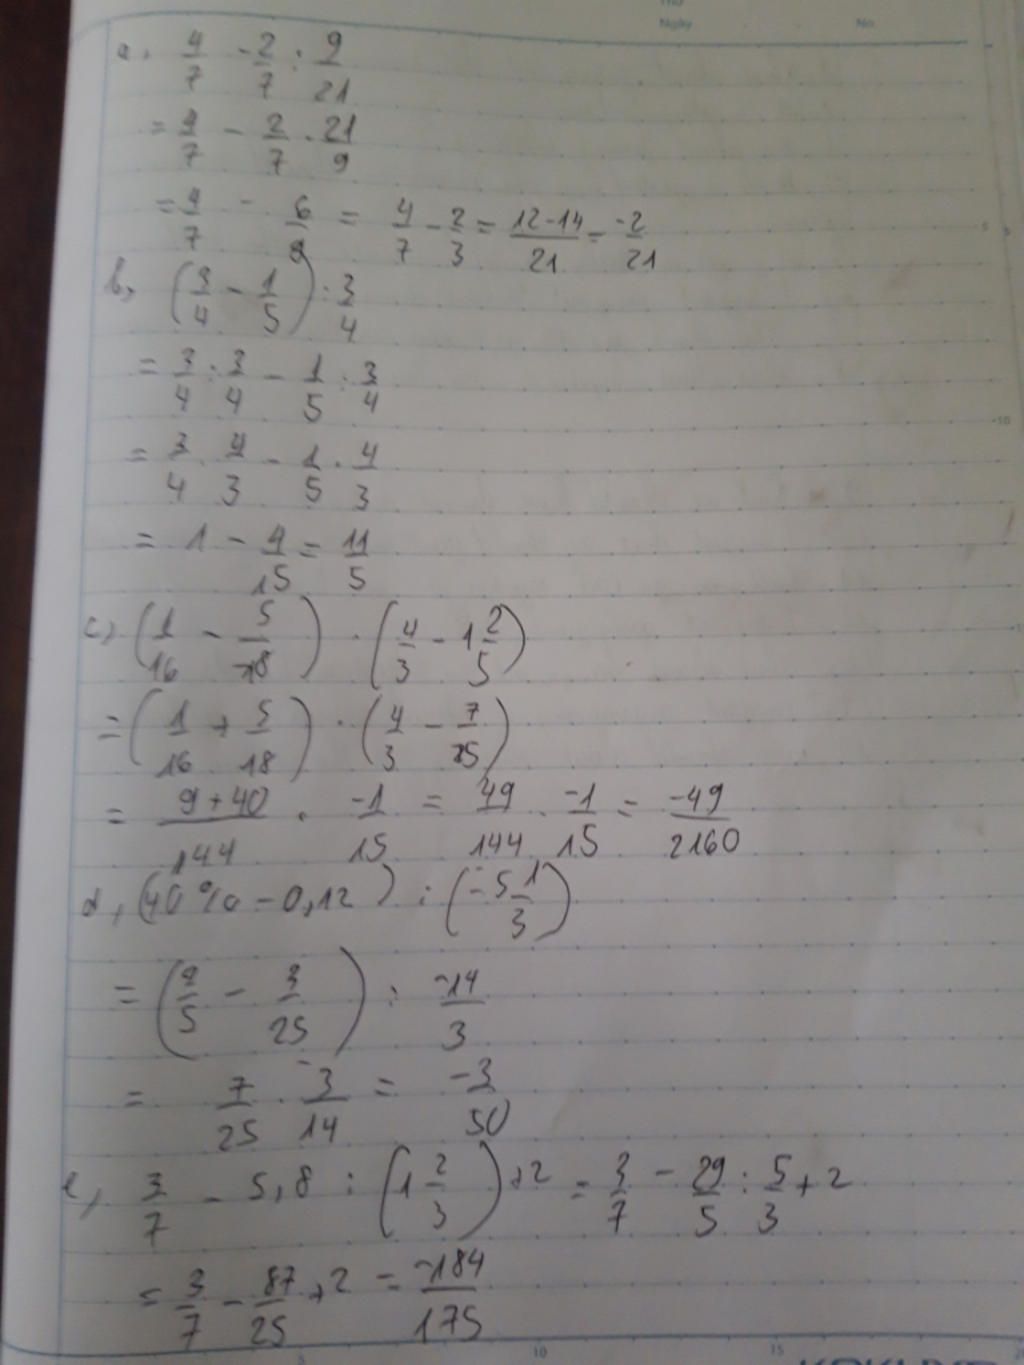 Thứ
Ngày No.
a, 4/7 - 2/7 : 9/21
= 4/7 - 2/7 . 21/9
= 4/7 - 6/9 = 4/7 - 2/3 = (12-14)/21 = -2/21
b, (3/4 - 1/5) : 3/4
= 3/4 : 3/4 - 1/5 : 3/4
= 3/4 . 4/3 - 1/5 . 4/3
= 1 - 4/15 = 11/5
c, (1/16 - 5/-18) . (4/3 - 1 2/5)
= (1/16 + 5/18) . (4/3 - 7/5)
= (9+40)/144 . -1/15 = 49/144 . -1/15 = -49/2160
d, (40% - 0,12) : (-5 1/3)
= (2/5 - 3/25) : -14/3
= 7/25 . -3/14 = -3/50
e, 3/7 - 5,8 : (1 2/3) + 2 = 3/7 - 29/5 : 5/3 + 2
= 3/7 - 87/25 + 2 = -184/175
5
10
5 10 15 20